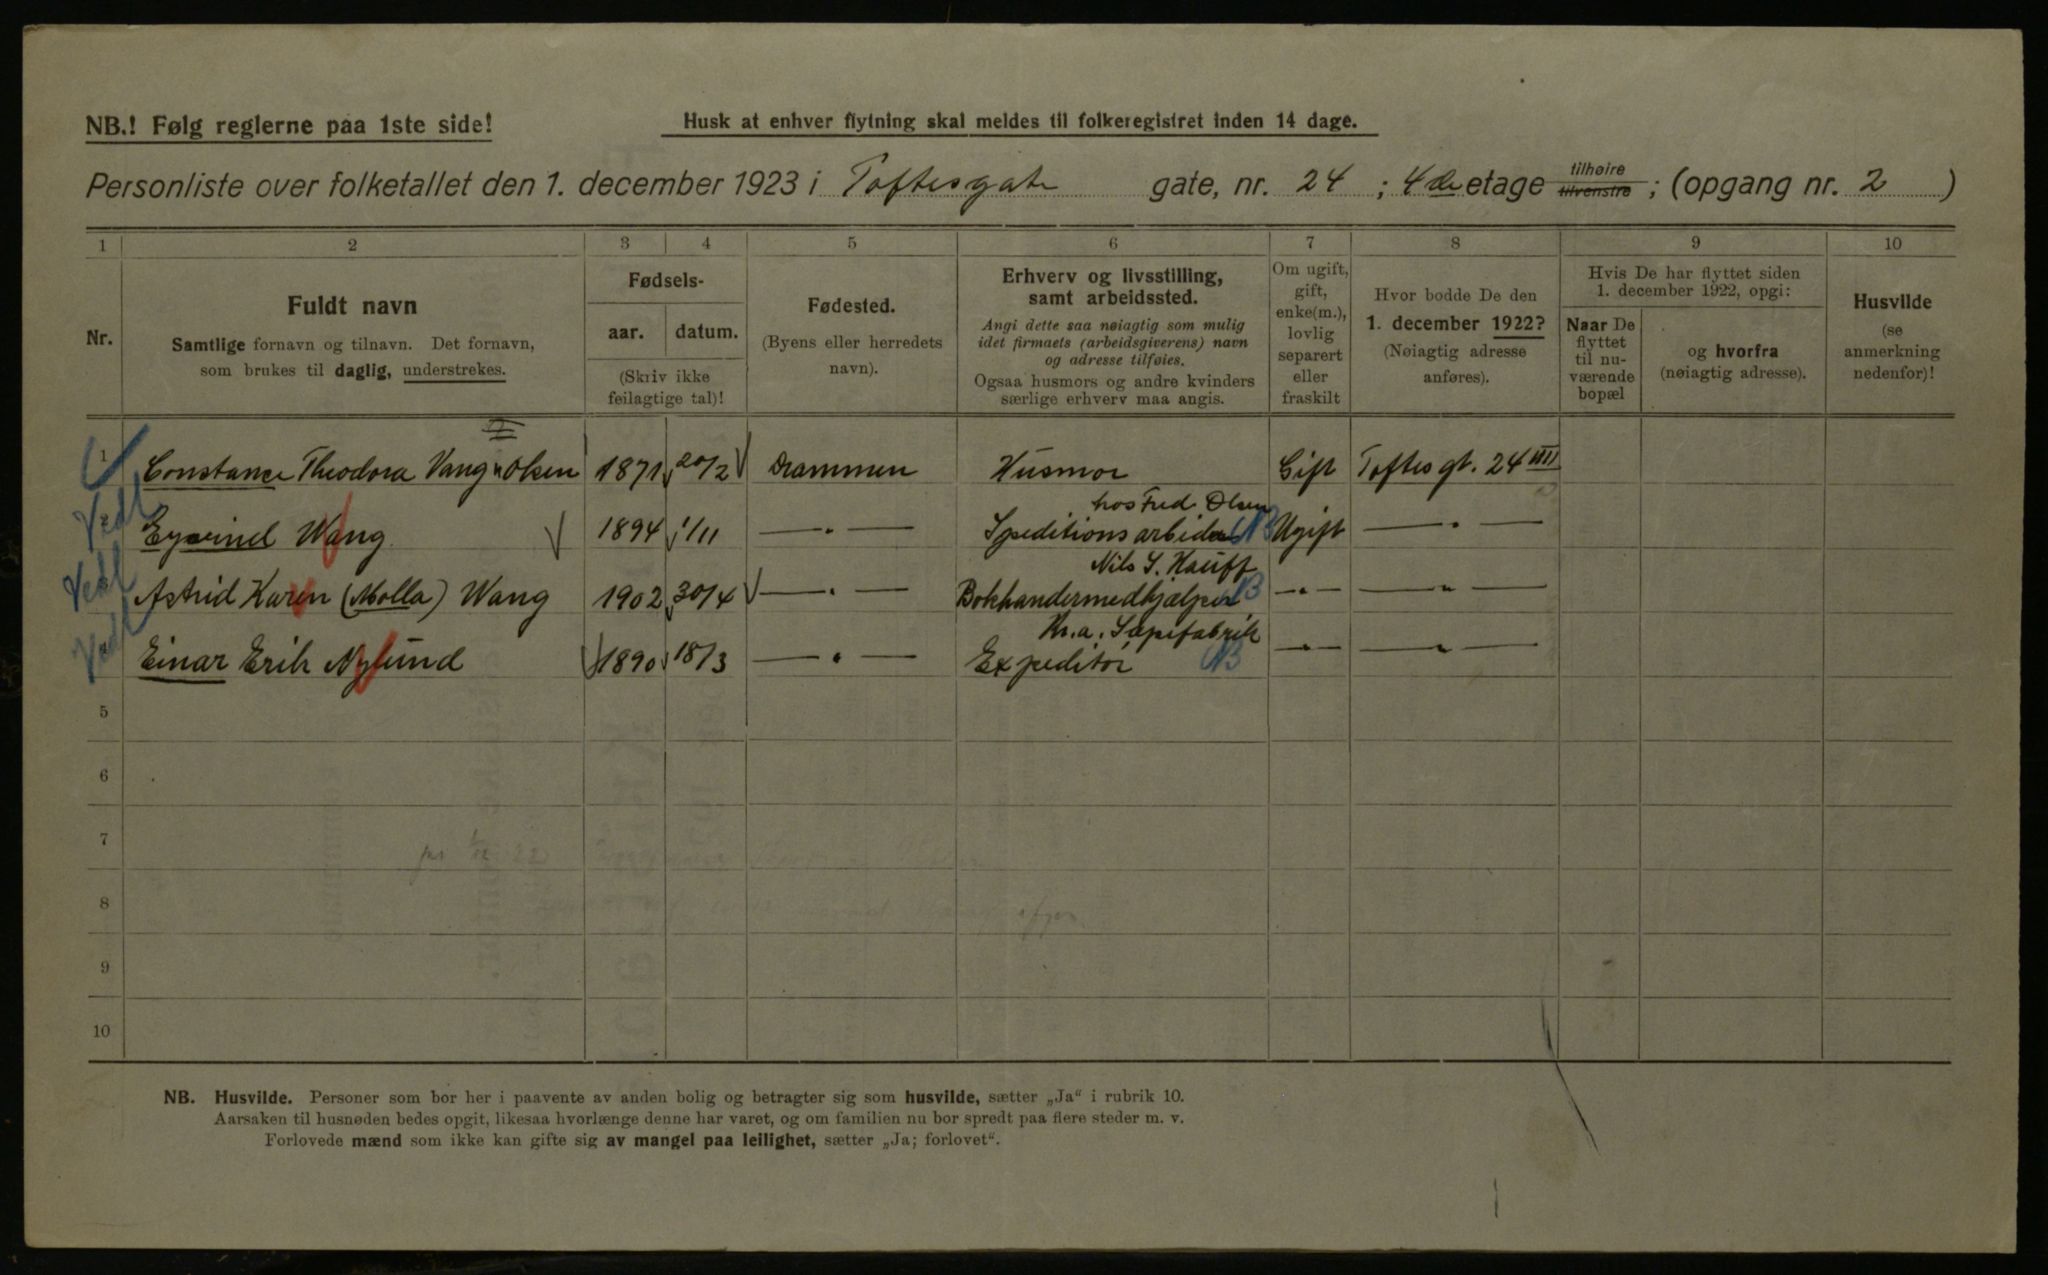 NB.! Følg reglerne paa 1ste side!
Husk at enhver flytning skal meldes til folkeregistret inden 14 dage.
Personliste over folketallet den 1. december 1923 i Toftesgate gate, nr. 24 ; 4de etage tilhøire tilvenstre ; (opgang nr. 2 )
1 2 3 4 5 6 7 8 9 10
Nr.
Fuldt navn
Samtlige fornavn og tilnavn. Det fornavn,
som brukes til daglig, understrekes.
Fødsels-
aar. datum.
(Skriv ikke
feilagtige tal)!
Fødested.
(Byens eller herredets
navn).
Erhverv og livsstilling,
samt arbeidssted.
Angi dette saa nøiagtig som mulig
idet firmaets (arbeidsgiverens) navn
og adresse tilføies.
Ogsaa husmors og andre kvinders
særlige erhverv maa angis.
Om ugift,
gift,
enke(m.),
lovlig
separert
eller
fraskilt
Hvor bodde De den
1. december 1922?
(Nøiagtig adresse
anføres).
Hvis De har flyttet siden
1. december 1922, opgi:
Naar De
flyttet
til nu-
værende
bopæl
og hvorfra
(nøiagtig adresse).
Husvilde
(se
anmerkning
nedenfor)!
1 Constance Theodora Vang Olsen 1871 20/2 Drammen Husmor Gift Toftes gt. 24 IIII
hos Fred. Olsen
Vedl Eyvind Wang 1894 1/11 — " — Speditionsarbider NB Ugift — " —
Nils S. Hauff
Vedl Astrid Karin (Molla) Wang 1902 30/4 — " — Bokhandermedhjælper NB — " — — " —
Kr.a. Sæpefabrik
Vedl Einar Erik Nylund 1890 18/3 — " — Expeditør NB — " — — " —
5
6
7
8
9
10
NB. Husvilde. Personer som bor her i paavente av anden bolig og betragter sig som husvilde, sætter „Ja“ i rubrik 10.
Aarsaken til husnøden bedes opgit, likesaa hvorlænge denne har varet, og om familien nu bor spredt paa flere steder m. v.
Forlovede mænd som ikke kan gifte sig av mangel paa leilighet, sætter „Ja; forlovet“.